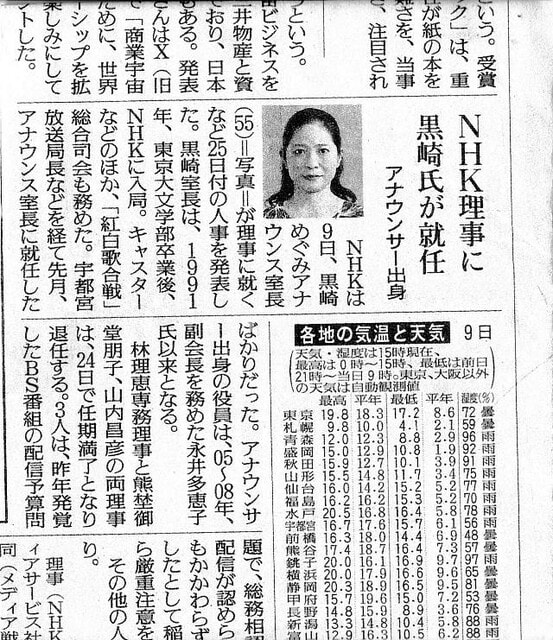 という。受賞
ク」は、重
が紙の本を
難さを、当事
、注目され
うという。
宙ビジネスを
三井物産と資
ており、日本
もある。発表
さんはX(旧
で「商業宇宙
ために、世界
ーシップを拡
楽しみにして
ントした。
NHK理事に
黒崎氏が就任
アナウンサー出身
NHKは
9日、黒崎
めぐみアナ
ウンス室長
(55)=写真=が理事に就く
など25日付の人事を発表し
た。黒崎室長は、1991
年、東京大文学部卒業後、
NHKに入局。キャスター
などのほか、「紅白歌合戦」
総合司会も務めた。宇都宮
放送局長などを経て先月、
アナウンス室長に就任した
ばかりだった。アナウンサ
ー出身の役員は、05〜08年、
副会長を務めた永井多恵子
氏以来となる。
林理恵専務理事と熊埜御
堂朋子、山内昌彦の両理事
は、24日で任期満了となり
退任する。3人は、昨年発覚
したBS番組の配信予算問
題で、総務相認
配信が認めら
もかかわらず
したとして稲
ら厳重注意を
その他の人
り。
理事(NHK
ィアサービス社
同(メディア戦
各地の気温と天気 9日
(天気・湿度は15時現在、
最高は0時〜15時、最低は前日
21時〜当日9時。東京、大阪以外
の天気は自動観測値
最高 平年 最低 平年 湿度(%)
東京 19.8 18.3 17.2 8.6 72 曇
札幌 9.8 10.0 4.1 2.1 59 曇
青森 12.0 12.3 8.8 2.9 96 雨
盛岡 15.0 12.9 10.8 1.9 92 雨
秋田 15.9 12.7 10.1 3.9 91 雨
山形 15.5 14.8 11.7 3.4 75 雨
仙台 16.0 14.2 15.2 5.2 77 雨
福島 16.2 16.2 15.3 5.2 70 雨
水戸 20.5 16.8 16.4 5.8 78 雨
宇都宮 16.7 17.6 15.7 6.1 56 雨
前橋 16.3 18.0 14.4 6.9 48 曇
熊谷 17.4 18.7 16.4 7.3 57 曇
銚子 20.0 16.1 16.9 9.7 97 雨
横浜 20.0 17.9 16.6 9.6 65 曇
静岡 20.3 18.9 16.5 9.5 81 曇
甲府 15.7 19.6 15.0 7.2 53 曇
長野 14.8 15.9 8.9 3.6 76 曇
新潟 13.3 14.8 10.4 5.8 88 雨
富山 12.9 16.3 10.4 5.4 88 雨